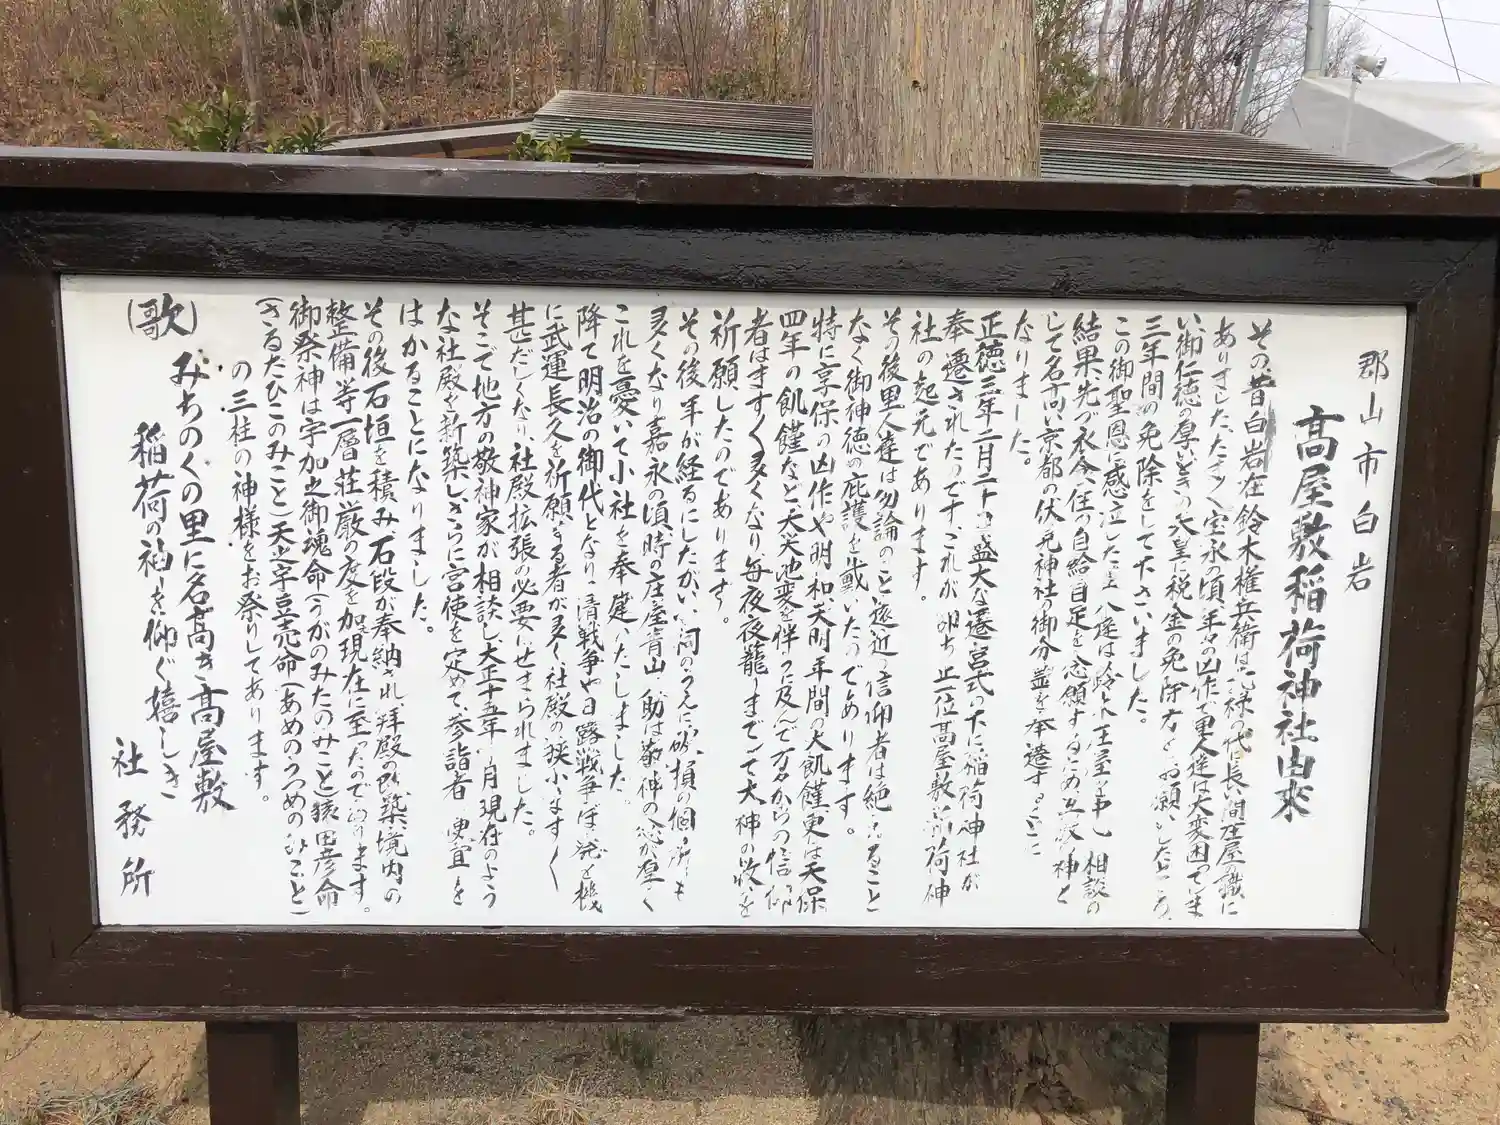 郡山市白岩
髙屋敷稲荷神社由来
その昔白岩在鈴木権兵衛は元禄の代に長い間庄屋の職に
ありました、たまたま宝永の頃、年々の凶作で里人達は大変困っていま
い御仁徳の厚いときの天皇に税金の免除方をお願いしたところ、
三年間の免除をして下さいました。
この御聖恩に感泣した 八達は鈴木庄屋 相談の
結果、先づ衣食住の自給自足を念願するため五穀の神と
して名高い京都の伏見神社の御分霊を奉遷することに
なりました。
正徳三年二月二十 盛大な遷宮式の下に稲荷神社が
奉遷されたのです、これが 即ち正一位髙屋敷稲荷神
社の起元であります。
その後里人達は勿論のこと遠近の信仰者は絶えること
なく御神徳の庇護を戴いたのであります。
特に享保の凶作や明和天明年間の大飢饉、更には天保
四年の飢饉など、天災地変を伴うに及んで万民からの信仰
者はますます多くなり、毎夜夜籠りまでして大神の救を
祈願したのであります。
その後年が経るにしたがい、 のうえに破損の個所も
多くなり嘉永の頃、時の庄屋青山 助は敬神の念が厚く
これを憂いて小社を奉建いたしました。
降て明治の御代となり日清戦争や日露戦争ぼっ発を機
に武運長久を祈願する者が多く社殿の狭小ますます
甚だしくなり、社殿拡張の必要にせまられました。
そこで地方の敬神家が相談し大正十五年 月現在のよう
な社殿を新築しさらに宮使を定めて、参詣者の便宜を
はかることになりました。
その後石垣を積み、石段が奉納され拝殿の改築、境内の
整備等一層荘厳の度を加え現在に至ったのであります。
御祭神は宇加之御魂命(うがのみたのみこと)猿田彦命
(さるたひこのみこと)天之宇豆売命(あめのうつめのみこと)
の三柱の神様をお祭りしてあります。
(歌) みちのくの里に名髙き髙屋敷
稲荷の福を仰ぐ嬉しき
社務所